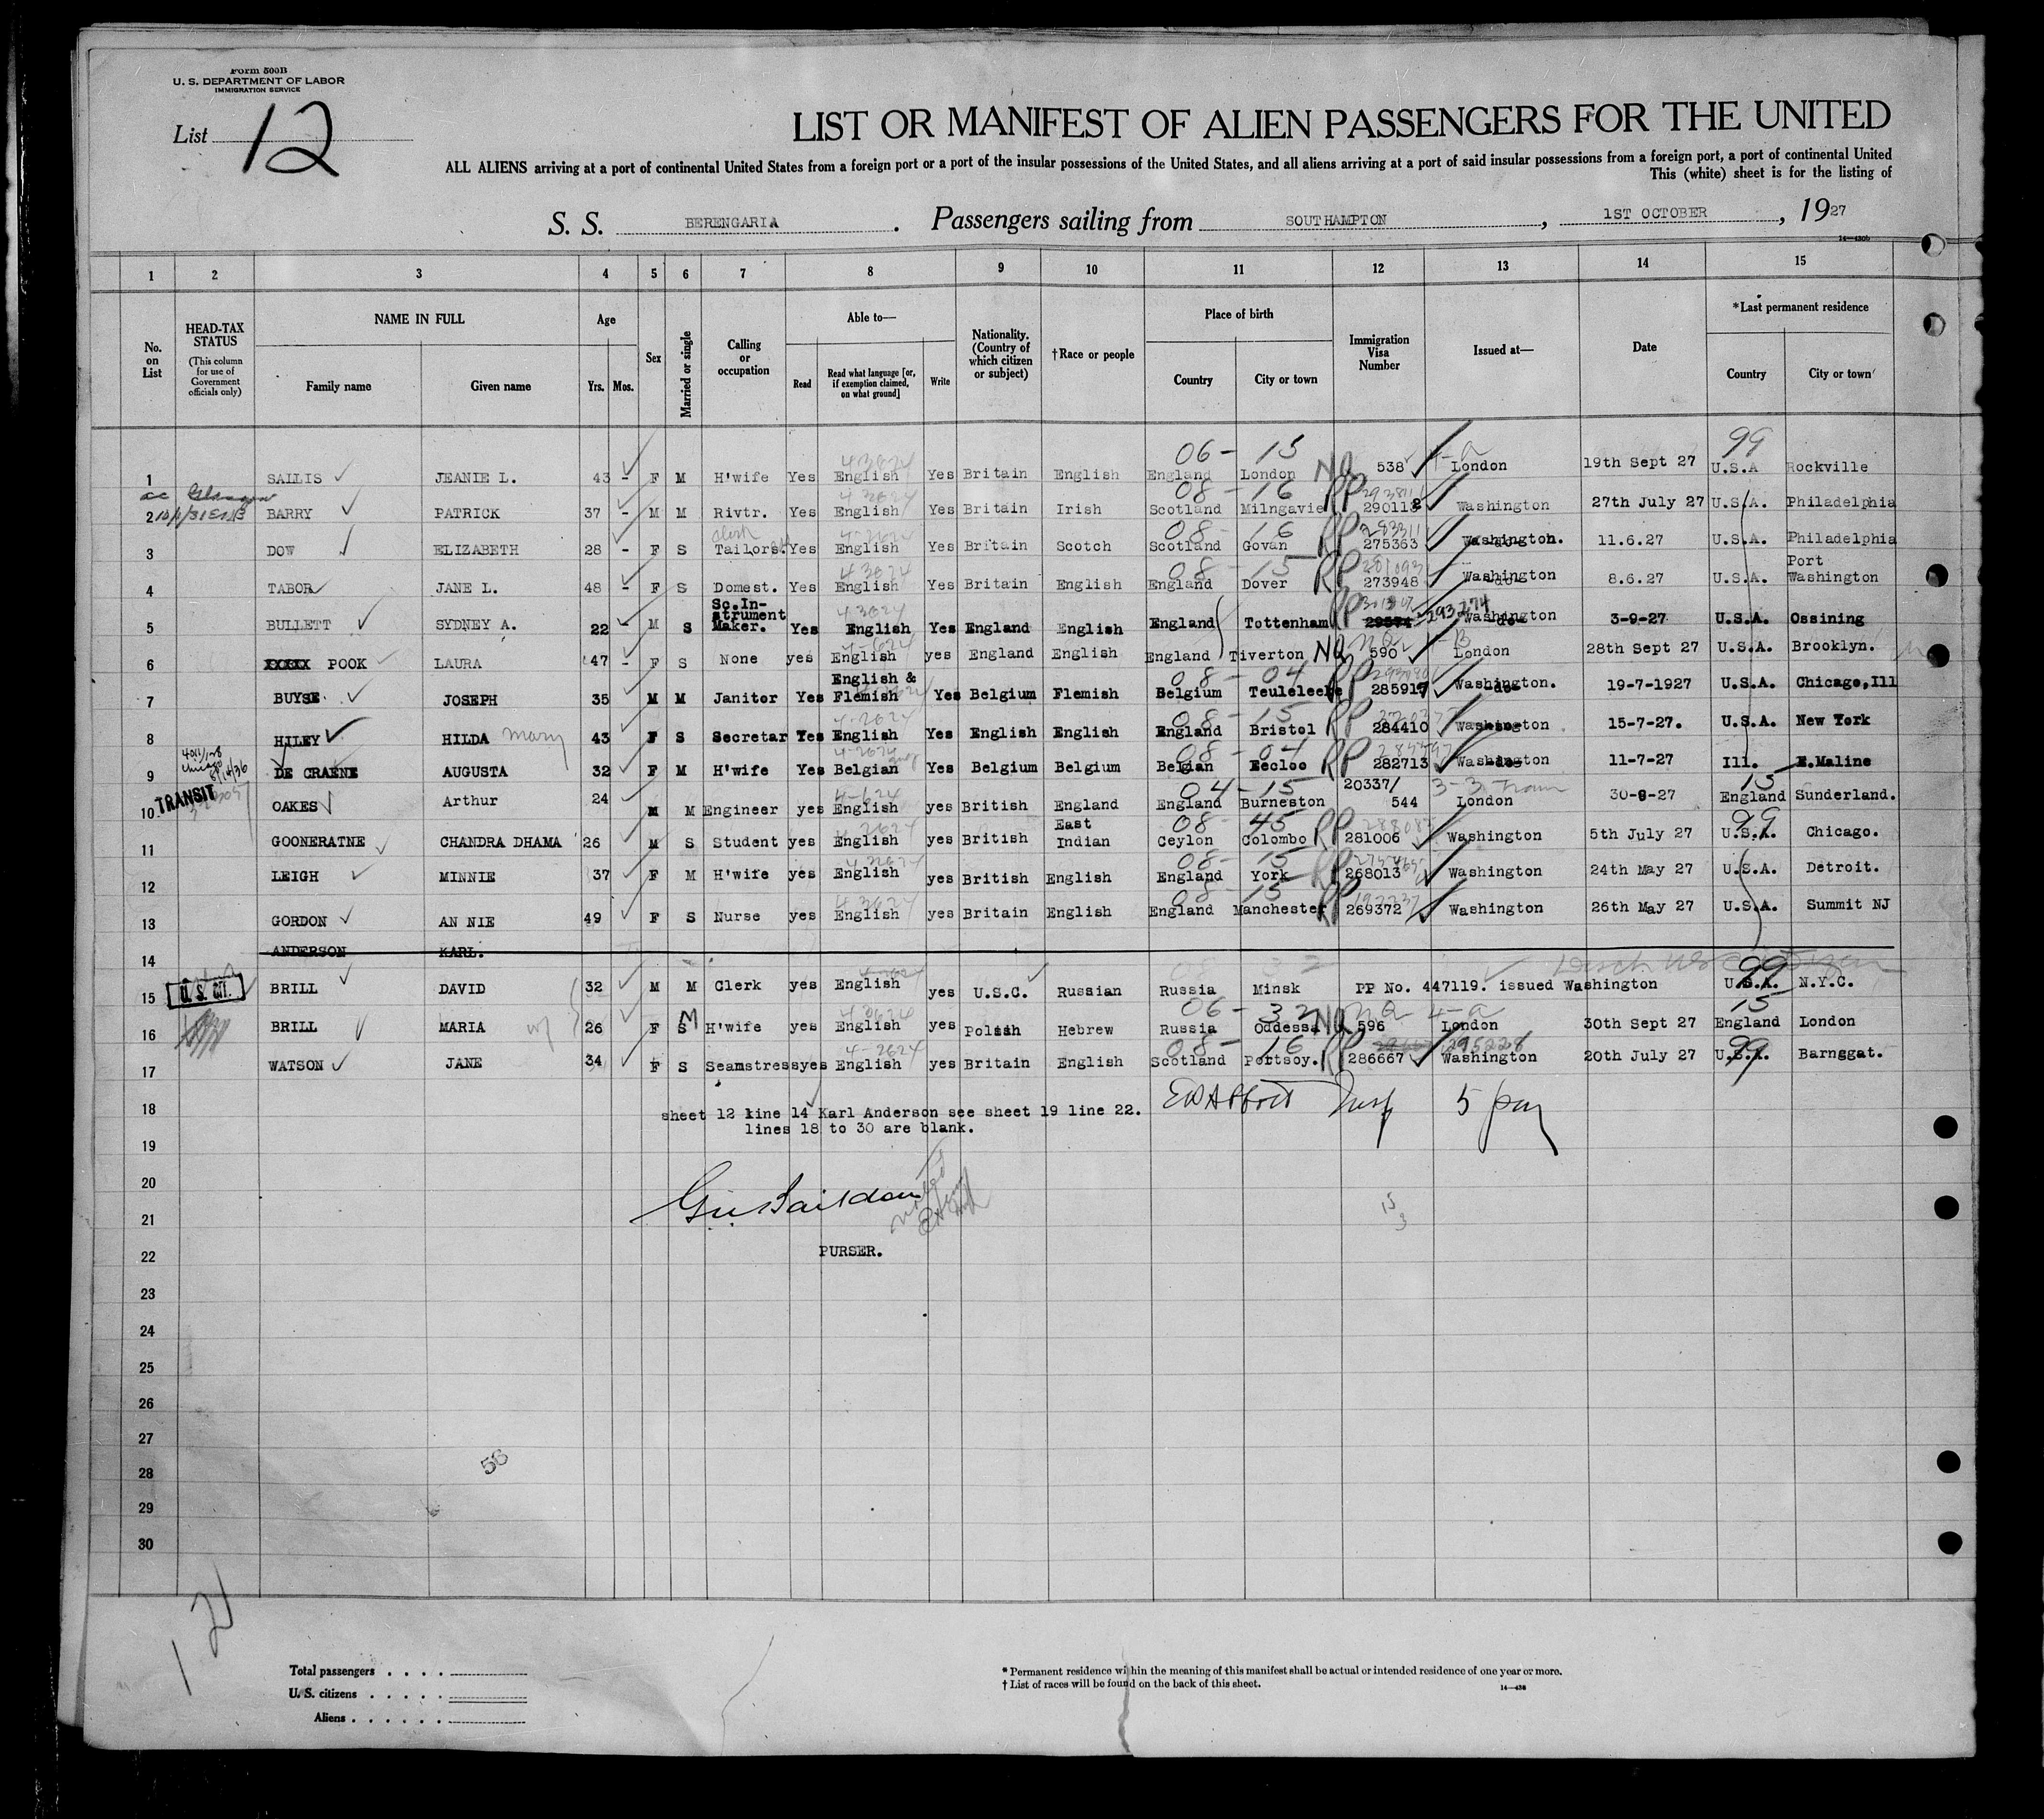 Form 500B
U. S. DEPARTMENT OF LABOR
IMMIGRATION SERVICE
List 12
LIST OR MANIFEST OF ALIEN PASSENGERS FOR THE UNITED
ALL ALIENS arriving at a port of continental United States from a foreign port or a port of the insular possessions of the United States, and all aliens arriving at a port of said insular possessions from a foreign port, a port of continental United
This (white) sheet is for the listing of
S. S. BERENGARIA. Passengers sailing from SOUTHAMPTON, 1ST OCTOBER, 1927
14—430b
1 2 3 4 5 6 7 8 9 10 11 12 13 14 15
No. on List
HEAD-TAX STATUS (This column for use of Government officials only)
NAME IN FULL Family name Given name
Age Yrs. Mos.
Sex
Married or single
Calling or occupation
Able to— Read Read what language [or, if exemption claimed, on what ground] Write
Nationality. (Country of which citizen or subject)
†Race or people
Place of birth Country City or town
Immigration Visa Number
Issued at—
Date
*Last permanent residence Country City or town
06 - 15 99
1 SAILIS JEANIE L. 43 - F M H'wife Yes English Yes Britain English England London NQ 538 London 19th Sept 27 U.S.A Rockville
Glasgow 08 - 16
2 BARRY PATRICK 37 - M M Rivtr. Yes English Yes Britain Irish Scotland Milngavie RP 290113 Washington 27th July 27 U.S.A. Philadelphia
08 - 16
3 DOW ELIZABETH 28 - F S Tailors. Yes English Yes Britain Scotch Scotland Govan RP 275363 Washington. 11.6.27 U.S.A. Philadelphia
08 - 15
4 TABOR JANE L. 48 - F S Domest. Yes English Yes Britain English England Dover RP 273948 Washington 8.6.27 U.S.A. Port Washington
5 BULLETT SYDNEY A. 22 - M S Sc.Instrument Maker. Yes English Yes England English England Tottenham RP 293274 Washington 3-9-27 U.S.A. Ossining
6 XXXXX POOK LAURA 47 - F S None yes English yes England English England Tiverton NQ 590 London 28th Sept 27 U.S.A. Brooklyn.
08 - 04
7 BUYSE JOSEPH 35 M M Janitor Yes English & Flemish Yes Belgium Flemish Belgium Teuleleeke RP 285917 Washington. 19-7-1927 U.S.A. Chicago,Ill
08 - 15
8 HILEY HILDA Mary 43 F S Secretar Yes English Yes English English England Bristol RP 284410 Washington 15-7-27. U.S.A. New York
08 - 04
9 DE CRAENE AUGUSTA 32 F M H'wife Yes Belgian Yes Belgium Belgium Belgian Eecloo RP 282713 Washington 11-7-27 Ill. E.Maline
TRANSIT 04 - 15 15
10 OAKES Arthur 24 M M Engineer yes English yes British England England Burneston 20337/ 544 London 30-8-27 England Sunderland.
08 - 45 99
11 GOONERATNE CHANDRA DHAMA 26 M S Student yes English yes British East Indian Ceylon Colombo RP 281006 Washington 5th July 27 U.S.A. Chicago.
08 - 15
12 LEIGH MINNIE 37 F M H'wife yes English yes British English England York RP 268013 Washington 24th May 27 U.S.A. Detroit.
08 - 15
13 GORDON AN NIE 49 F S Nurse yes English yes Britain English England Manchester RP 269372 Washington 26th May 27 U.S.A. Summit NJ
14 ANDERSON KARL.
U.S. CIT. 99
15 BRILL DAVID 32 M M Clerk yes English yes U.S.C. Russian Russia Minsk PP No. 447119. issued Washington U.S.A. N.Y.C.
06 - 32 15
16 BRILL MARIA 26 F M H'wife yes English yes Polish Hebrew Russia Oddessa NQ 596 London 30th Sept 27 England London
08 - 16 99
17 WATSON JANE 34 F S Seamstress yes English yes Britain English Scotland Portsoy. RP 286667 Washington 20th July 27 U.S.A. Barnggat.
18 sheet 12 line 14 Karl Anderson see sheet 19 line 22.
lines 18 to 30 are blank.
19
20
21
22 PURSER.
23
24
25
26
27
28
29
30
56
12
Total passengers
U. S. citizens
Aliens
* Permanent residence within the meaning of this manifest shall be actual or intended residence of one year or more.
† List of races will be found on the back of this sheet.
14—430